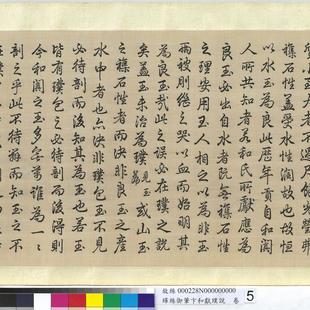 襍石性蓋受水性潤故也故恒
以水玉為良此歷年貢自和闐
人所共知者若和氏所獻應為
良玉必出自水者既無襍石性
之理安用玉人相之以為非玉
而被刖繼之哭以血而始明其
為良玉哉此之誤必在璞之說
矣蓋玉未治為璞見玉篇或山玉
之襍石性者而決非良玉之產
水中者也亦決非璞包玉不見
必待剖而後知其為玉也若玉
皆有璞包之必待剖而後得則
今和闐之玉多誰為一一
剖之乎此不待辯而知玉之不
故絲 000228N000000000
緙絲御筆卞和獻璞說 卷
5